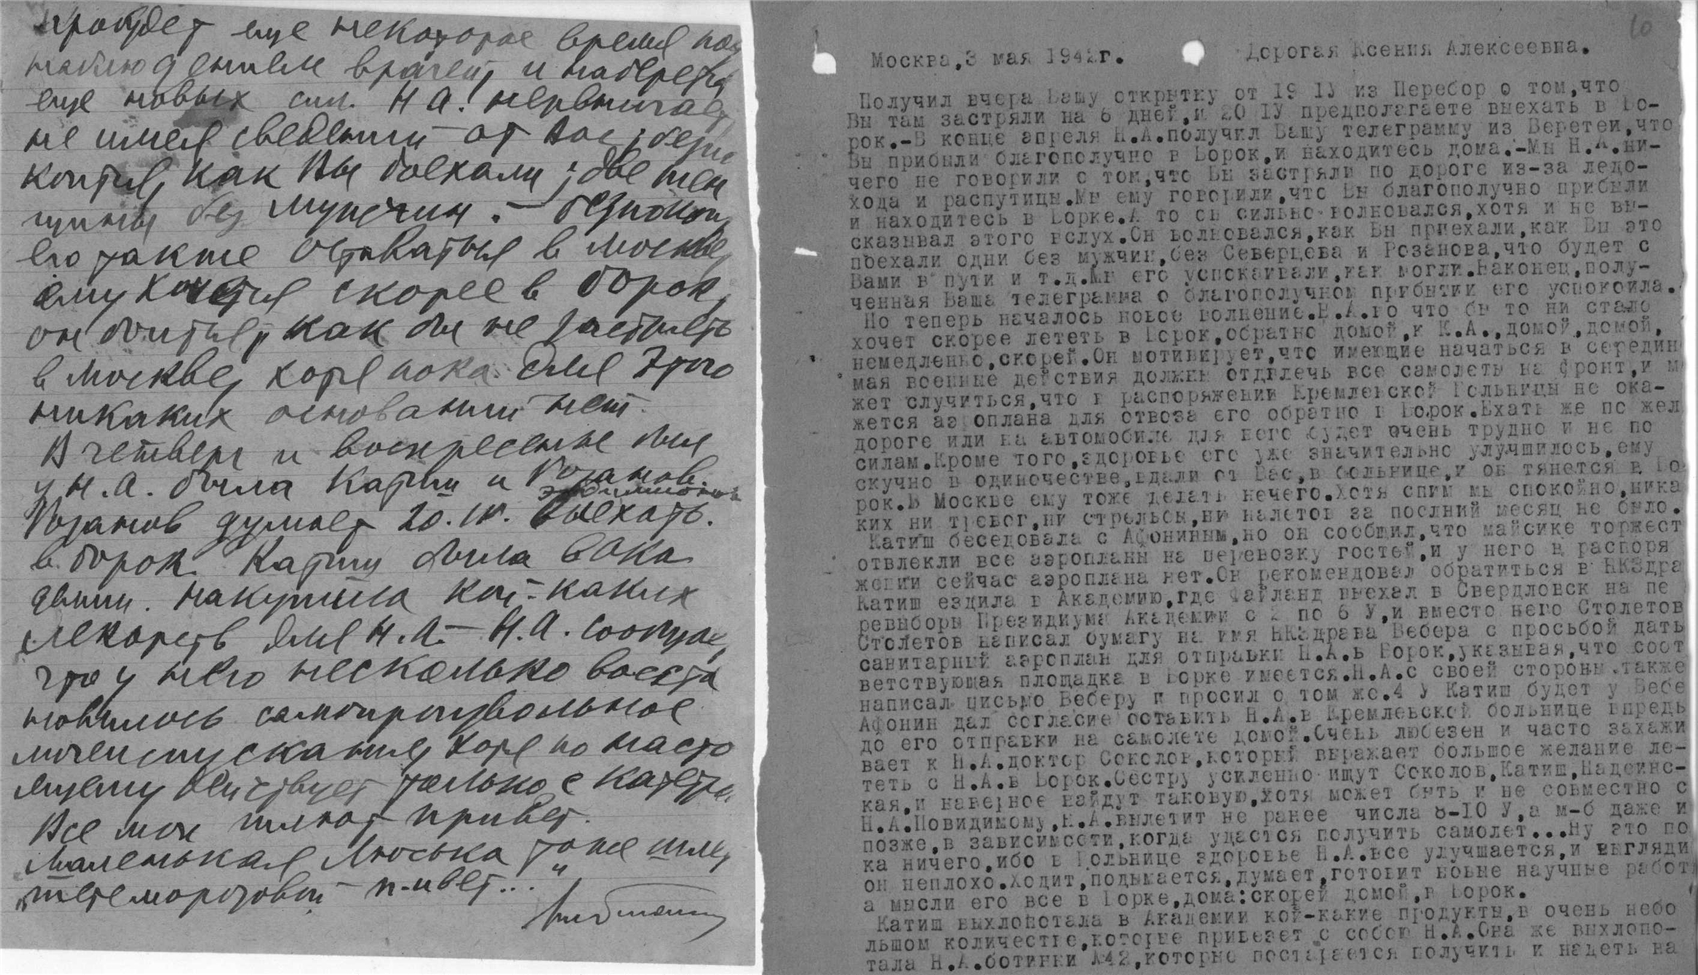 пройдет еще некоторое время под
наблюдением врачей, и наберется
еще новых сил. Н.А. нервничает
не имея сведений от Вас, беспо
коится, как Вы доехали; две жен
щины без мужчин. – беспокоит
его также остаться в Москве,
ему хочется скорее в Борок,
он боится, как бы не застрять
в Москве, хотя пока для этого
никаких оснований нет.
В четверг и воскресенье
у Н.А. была Катиш и Розанов.
Розанов думает 20.IV. выехать
в Борок. Катиш была в Ака
демии. Накупила кой-каких
лекарств для Н.А. – Н.А. сообщает,
что у него несколько восста
новилось самопроизвольное
мочеиспускание, хотя по насто
ящему действует только с катетр.
Все мои шлют привет.
Маленькая Люська тоже шлет
"тете морозовой п-ивет..."
10
Москва,3 мая 1942г. Дорогая Ксения Алексеевна.
Получил вчера Вашу открытку от 19 IУ из Перебор о том,что
Вы там застряли на 6 дней,и 20 IУ предполагаете выехать в Бо-
рок.-В конце апреля Н.А.получил Вашу телеграмму из Веретеи,что
Вы прибыли благополучно в Борок,и находитесь дома.-Мы Н.А.ни-
чего не говорили о том,что Вы застряли по дороге из-за ледо-
хода и распутицы.Мы ему говорили,что Вы благополучно прибыли
и находитесь в Борке.А то он сильно волновался,хотя и не вы-
сказывал этого вслух.Он волновался,как Вы приехали,как Вы это
поехали одни без мужчин,без Северцева и Розанова,что будет с
Вами в пути и т.д.Мы его успокаивали,как могли.Наконец,полу-
ченная Ваша телеграмма о благополучном прибытии его успокоила.
Но теперь началось новое волнение.Н.А.во что бы то ни стало
хочет скорее лететь в Борок,обратно домой,к К.А.,домой,домой,
немедленно,скорей.Он мотивирует,что имеющие начаться в середин
мая военные действия должны отвлечь все самолеты на фронт,и м
жет случиться,что в распоряжении Кремлевской Больницы не ока-
жется аэроплана для отвоза его обратно в Борок.Ехать же по жел
дороге или на автомобиле для него будет очень трудно и не по
силам.Кроме того,здоровье его уже значительно улучшилось,ему
скучно в одиночестве,вдали от Вас,в больнице,и он тянется в Бо
рок.В Москве ему тоже делать нечего.Хотя спим мы спокойно,ника
ких ни тревог,ни стрельбы,ни налетов за послний месяц не было.
Катиш беседовала с Афониным,но он сообщил,что майсике торжест
отвлекли все аэропланы на перевозку гостей,и у него в распоря
жении сейчас аэроплана нет.Он рекомендовал обратиться в НКЗдра
Катиш ездила в Академию,где Файланд выехал в Свердловск на пе
ревыборы Президиума Академии с 2 по 6 У,и вместо него Столетов
Столетов написал бумагу на имя НКЗдрава Вебера с просьбой дать
санитарный аэроплан для отправки Н.А.в Борок,указывая,что соот
ветствующая площадка в Борке имеется.Н.А.с своей стороны также
написал письмо Веберу и просил о том же.4 У Катиш будет у Вебе
Афонин дал согласие оставить Н.А.в Кремлевской больнице впредь
до его отправки на самолете домой.Очень любезен и часто захажи
вает к Н.А.доктор Соколов,который выражает большое желание ле-
теть с Н.А.в Борок.Сестру усиленно ищут Соколов,Катиш,Надеинс-
кая,и наверное найдут таковую,хотя может быть и не совместно с
Н.А.Повидимому,Н.А.вылетит не ранее числа 8-10 У,а м-б даже и
позже,в зависимсети,когда удастся получить самолет...Ну это по
ка ничего,ибо в Больнице здоровье Н.А.все улучшается,и выгляди
он неплохо.Ходит,подымается,думает,готовит новые научные работ
а мысли его все в Борке,дома:скорей домой,в Борок.
Катиш выхлопотала в Академии кой-какие продукты,в очень небо
льшом количестве,которые привезет с собою Н.А.Она же выхлопо-
тала Н.А.ботинки №42,которые постарается получить и надеть на